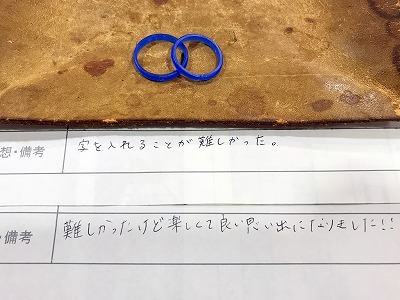 想・備考
字を入れることが難しかった。
・備考
難しかったけど楽しくて良い思い出になりました!!